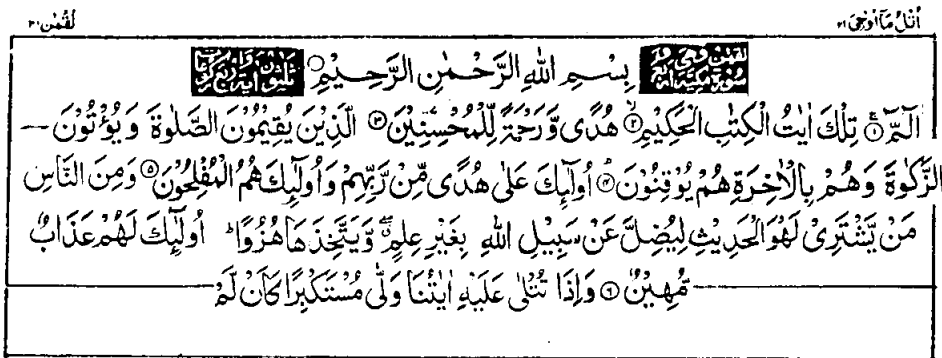 اُتْلُ مَآ اُوْحِىَ ۲۱ لُقْمٰن ۳۱
بِسْمِ اللهِ الرَّحْمٰنِ الرَّحِيْمِ
الٓمّٓ ۱ تِلْكَ اٰيٰتُ الْكِتٰبِ الْحَكِيْمِ ۲ هُدًى وَّرَحْمَةً لِّلْمُحْسِنِيْنَ ۳ الَّذِيْنَ يُقِيْمُوْنَ الصَّلٰوةَ وَيُؤْتُوْنَ
الزَّكٰوةَ وَهُمْ بِالْاٰخِرَةِ هُمْ يُوْقِنُوْنَ ۴ اُولٰٓئِكَ عَلٰى هُدًى مِّنْ رَّبِّهِمْ وَاُولٰٓئِكَ هُمُ الْمُفْلِحُوْنَ ۵ وَمِنَ النَّاسِ
مَنْ يَّشْتَرِىْ لَهْوَ الْحَدِيْثِ لِيُضِلَّ عَنْ سَبِيْلِ اللهِ بِغَيْرِ عِلْمٍ وَّيَتَّخِذَهَا هُزُوًا ط اُولٰٓئِكَ لَهُمْ عَذَابٌ
مُّهِيْنٌ ۶ وَاِذَا تُتْلٰى عَلَيْهِ اٰيٰتُنَا وَلّٰى مُسْتَكْبِرًا كَاَنْ لَّمْ